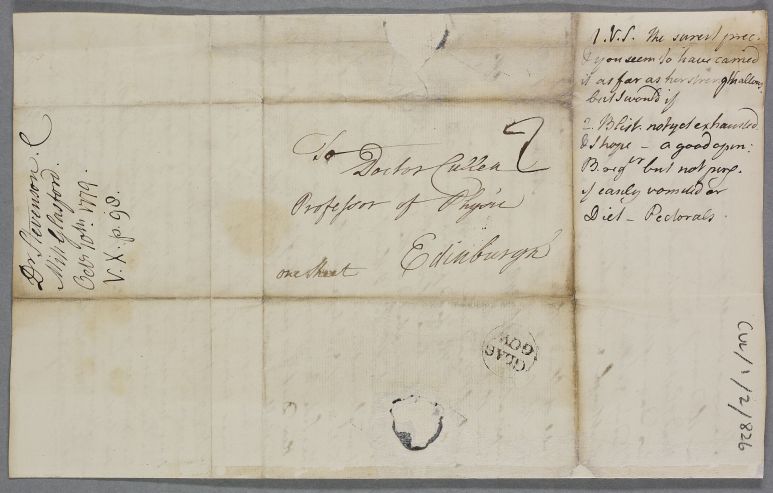 Dr Stevenson. C
Miss Glasford.
Octr 10th 1779.
V. X. p. 98.
To
Doctor Cullen
Professor of Physic
Edinburgh
one Sheet
2
GLAS
GOW
1. V.S. the surest prec.
& you seem to have carried
it as far as her strength allows.
but I would if
2. Blist. not yet exhausted
& I hope - a good open:
B. regr but not purg.
if easily vomited or
Diet - Pectorals.
CUL/1/2/826